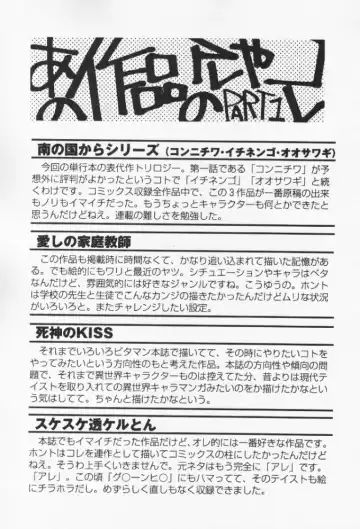 あの作品のアレやコレ
PART1
南の国からシリーズ（コンニチワ・イチネンゴ・オオサワギ）
今回の単行本の表代作トリロジー。第一話である「コンニチワ」が予
想外に評判がよかったというコトで「イチネンゴ」「オオサワギ」と続
くわけです。コミックス収録全作品中で、この３作品が一番原稿の出来
もノリもイマイチだった。もうちょっとキャラクターも何とかできたと
思うんだけどねえ。連載の難しさを勉強した。
愛しの家庭教師
この作品も掲載時に時間なくて、かなり追い込まれて描いた記憶があ
る。でも絵的にもワリと最近のヤツ。シチュエーションやキャラはベタ
なんだけど、雰囲気的には好きなジャンルですね。こうゆうの。ホント
は学校の先生と生徒でこんなカンジの描きたかったんだけどムリな状況
がいろいろと。またチャレンジしたい設定。
死神のKISS
それまでいろいろピタマン本誌で描いてて、その時にやりたいコトを
やってみたいという方向性のもと考えた作品。本誌の方向性や傾向の問
題で、それまで異世界キャラクターものは控えてた分、昔よりは現代テ
イストを取り入れての異世界キャラマンガみたいのをが描けたかなとい
う気はしてて。ちゃんと描けたかなという。
スケスケ透ケルとん
本誌でもイマイチだった作品だけど、オレ的には一番好きな作品です。
ホントはコレを連作として描いてコミックスの柱にしたかったんだけど
ねえ。そうわ上手くいきませんで。元ネタはもう完全に「アレ」です。
「アレ」。この頃「グ○ーンヒ○」にもハマってて、そのテイストも絵
にチラホラだし。めずらしく直しもなく収録できました。